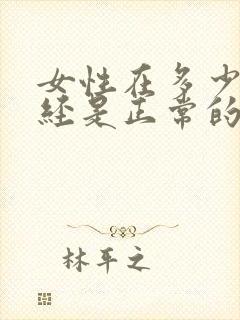 女性在多少
经是正常的
林平之